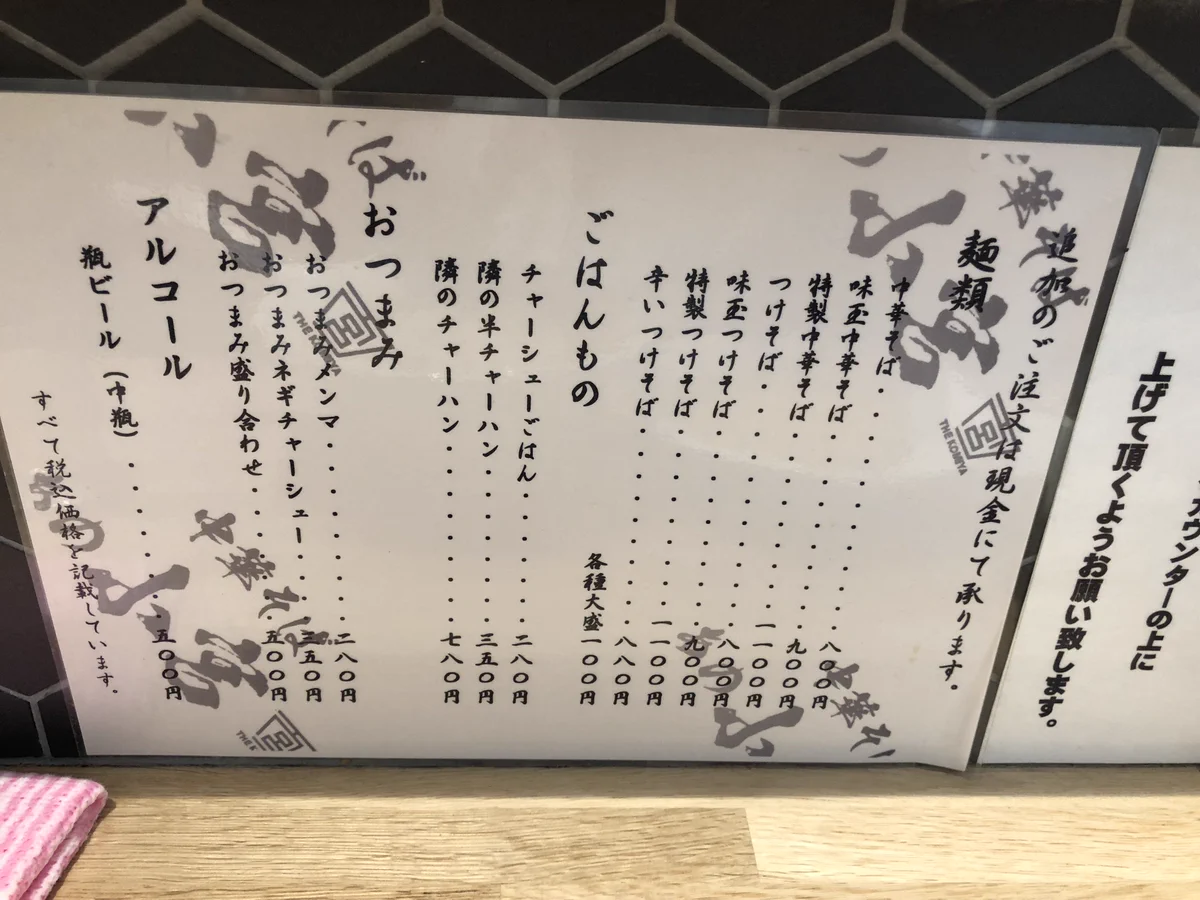 カウンターの上に
上げて頂くようお願い致します。
追加のご注文は現金にて承ります。
麺類
中華そば・・・・・・・八〇〇円
味玉中華そば・・・・・・九〇〇円
特製中華そば・・・・・・一一〇〇円
つけそば・・・・・・・八〇〇円
味玉つけそば・・・・・・九〇〇円
特製つけそば・・・・・・一一〇〇円
辛いつけそば・・・・・・八八〇円
各種大盛 一〇〇円
ごはんもの
チャーシューごはん・・・・・二八〇円
隣の半チャーハン・・・・・・三五〇円
隣のチャーハン・・・・・・・七八〇円
おつまみ
おつまみメンマ・・・・・・・二八〇円
おつまみネギチャーシュー・・・三五〇円
おつまみ盛り合わせ・・・・・五〇〇円
アルコール
瓶ビール(中瓶)・・・・・・・五〇〇円
すべて税込価格を記載しています。
THE KOMIYA